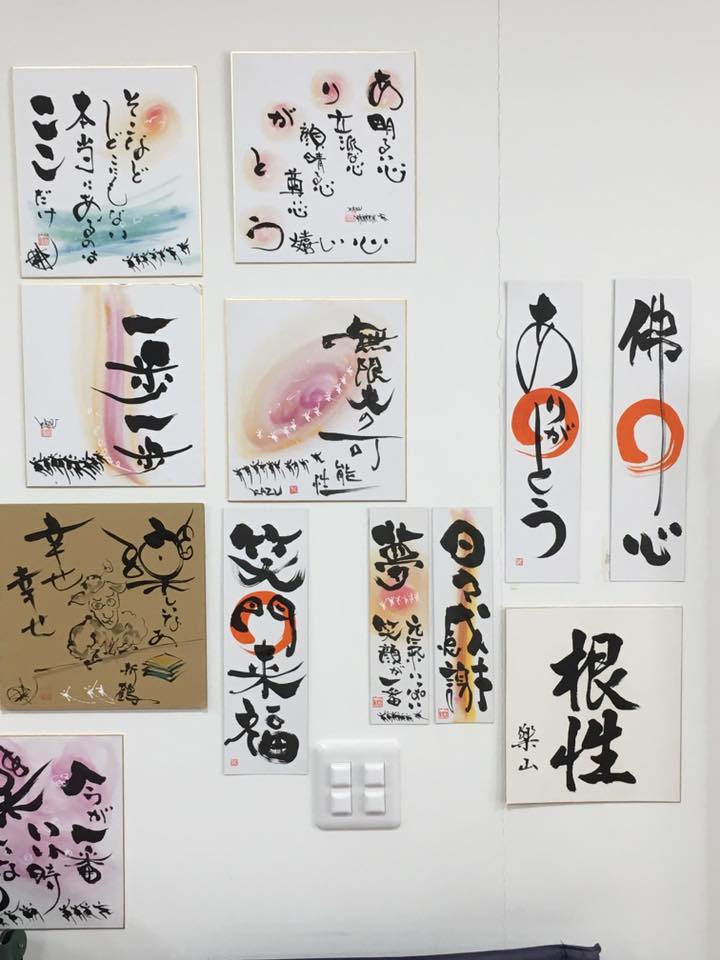 そこなど
どこにもない
本当にあるのは
ここだけ
あ明るい心
り立派な心
が顔晴る心
と尊心
う嬉しい心
一歩一歩
無限大の可能性
KAZU
ありがとう
佛の心
楽しいなあ
幸せ
幸せ
笑門来福
夢
元気いっぱい
笑顔が一番
日々
感謝
根性
楽山
今が一番
いい時